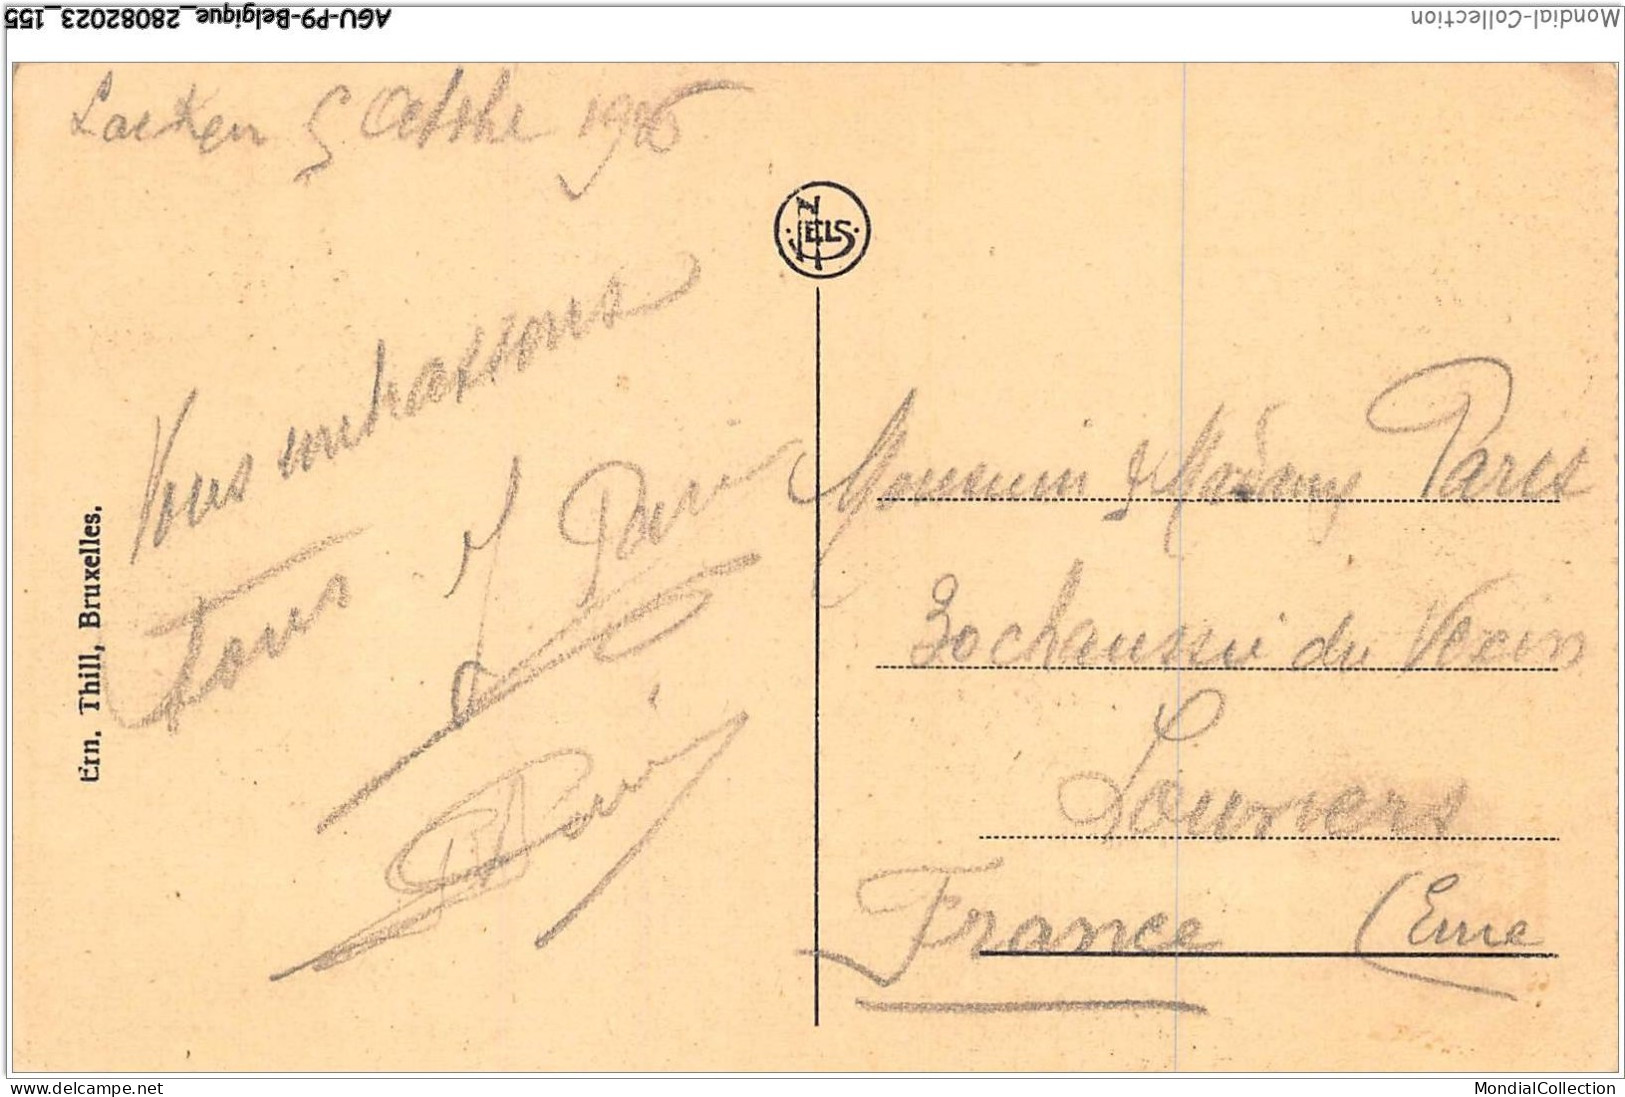 AGU-P9-Belgique_28082023_155
Mondial-Collection
Laeken 5 Octobre
NELS
Vous embrassons
Tous
Ern. Thill, Bruxelles.
Monsieur & Madame Paris
30 chaussée du Vexin
Louviers
France (Eure
delcampe.net
MondialCollection